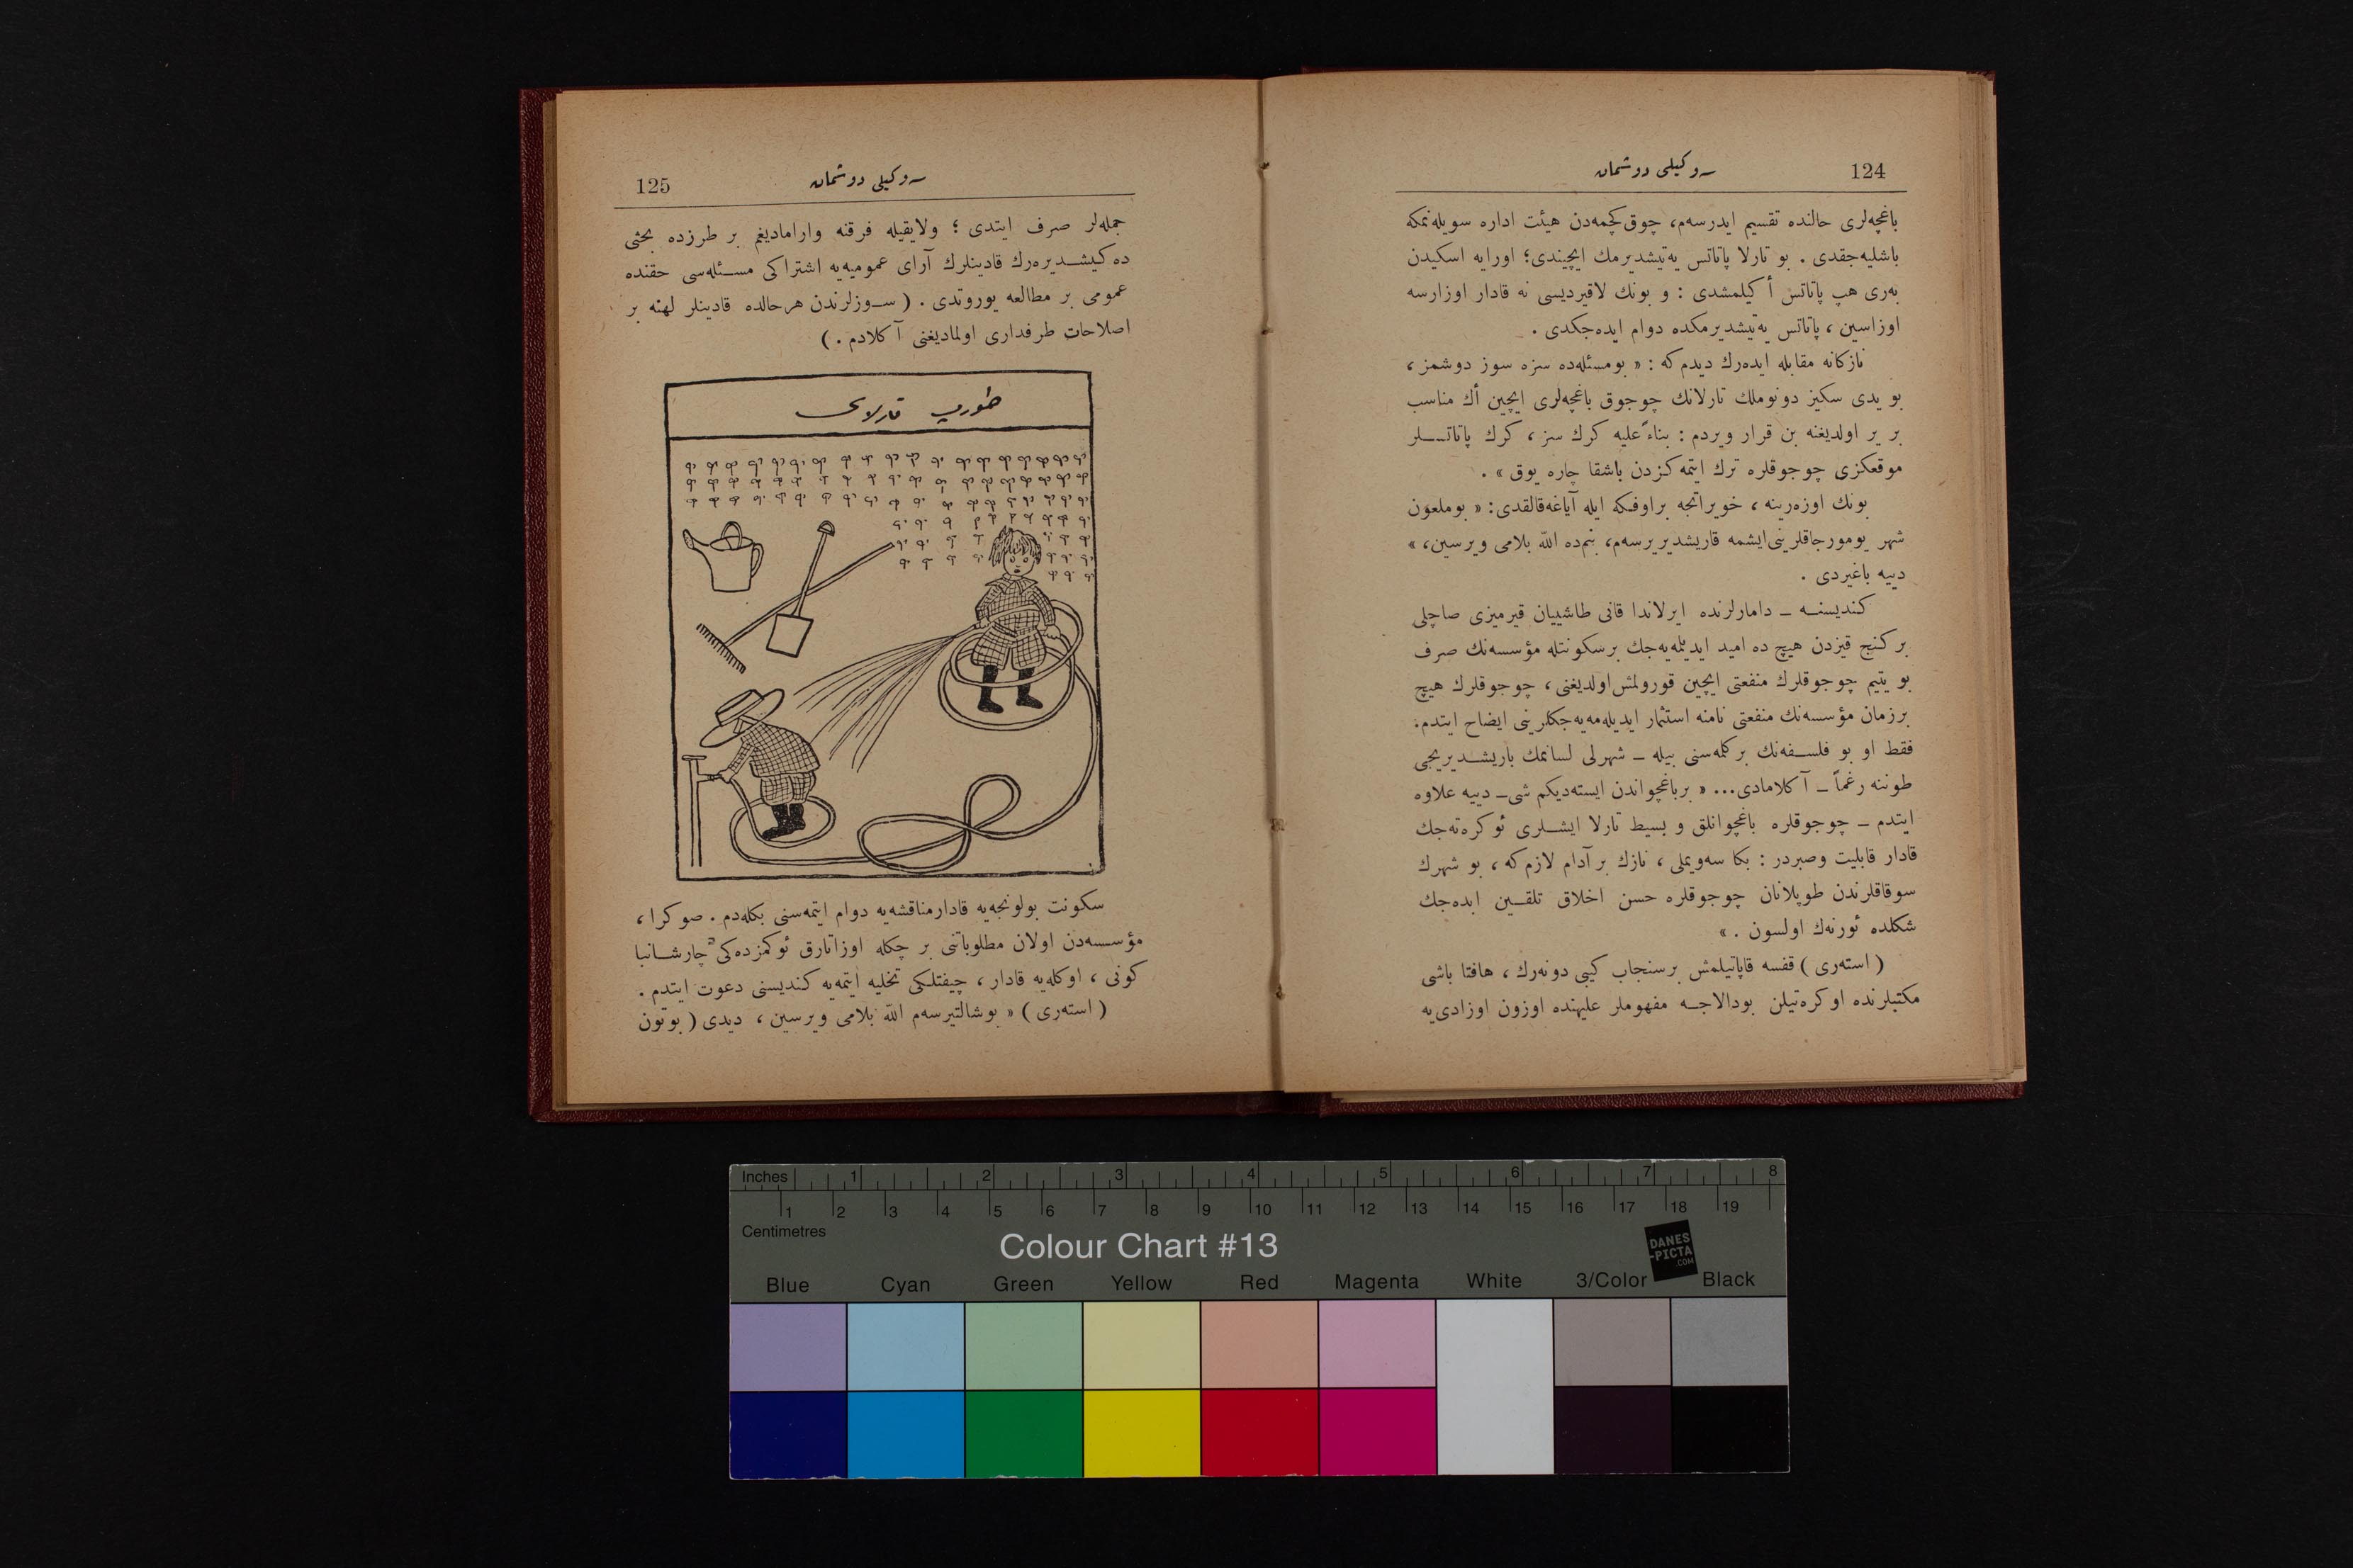 124
سوكيلى دوشمان
باغچه‌لرى حالنده تقسيم ايدرسه‌م، چوق كچمه‌دن هيئت اداره سويله‌نمكه
باشليه‌جقدى . بو تارلا پاتاتس يه‌تيشديرمك ايچيندى؛ اورايه اسكيدن
به‌رى هپ پاتاتس أكيلمشدى : و بونك لاقيرديسى نه قادار اوزارسه
اوزاسين ، پاتاتس يه‌تيشديرمكده دوام ايده‌جكدى .
نازكانه مقابله ايده‌رك ديدم كه : « بومسئله‌ده سزه سوز دوشمز ،
بو يدى سكيز دونوملك تارلانك چوجوق باغچه‌لرى ايچين أك مناسب
بر ير اولديغنه بن قرار ويردم : بناءً عليه كرك سز ، كرك پاتاتسلر
موقعكزى چوجوقلره ترك ايتمه‌كزدن باشقا چاره يوق » .
بونك اوزه‌رينه ، خويراتجه براوفكه ايله آياغه‌قالقدى: « بوملعون
شهر يومورجاقلرينى‌ايشمه قاريشديريرسه‌م، بنم‌ده الله بلامى ويرسين، »
دييه باغيردى .
كنديسنه ـ دامارلرنده ايرلاندا قانى طاشييان قيرميزى صاچلى
بر كنج قيزدن هيچ ده اميد ايديلميه‌جك برسكونتله مؤسسه‌نك صرف
بو يتيم چوجوقلرك منفعتى ايچين قورولمش‌اولديغنى ، چوجوقلرك هيچ
برزمان مؤسسه‌نك منفعتى نامنه استثمار ايديله‌مه‌يه‌جكلرينى ايضاح ايتدم.
فقط او بو فلسفه‌نك بر كله‌سنى بيله ـ شهرلى لسانمك باريشديريجى
طوننه رغماً ـ آكلامادى... « برباغچواندن ايسته‌ديكم شى ـ دييه علاوه
ايتدم ـ چوجوقلره باغچوانلق و بسيط تارلا ايشلرى ئوكره‌ته‌جك
قادار قابليت وصبردر : بكا سه‌ويملى ، نازك بر آدام لازم كه ، بو شهرك
سوقاقلرندن طوپلانان چوجوقلره حسن اخلاق تلقين ايده‌جك
شكلده ئورنه‌ك اولسون . »
( استه‌رى ) قفسه قاپاتيلمش برسنجاب كيبى دونه‌رك ، هافتا باشى
مكتبلرنده اوكره‌تيلن بودالاجه مفهوملر عليهنده اوزون اوزادى‌يه
125
سوكيلى دوشمان
جمله‌لر صرف ايتدى ؛ ولايقيله فرقنه واراماديغم بر طرزده بحثى
ده‌كيشديره‌رك قادينلرك آراى عموميه‌يه اشتراكى مسئله‌سى حقنده
عمومى بر مطالعه يوروتدى . ( سوزلرندن هرحالده قادينلر لهنه بر
اصلاحات طرفدارى اولماديغنى آكلادم . )
سكونت بولونجه‌يه قادارمناقشه‌يه دوام ايتمه‌سنى بكله‌دم . صوكرا ،
مؤسسه‌دن اولان مطلوباتنى بر چكله اوزاتارق ئوكمزده‌كى چارشانبا
كونى ، اوكله‌يه قادار ، چيفتلكى تخليه ايتمه‌يه كنديسنى دعوت ايتدم .
( استه‌رى ) « بوشالتيرسه‌م الله بلامى ويرسين ، ديدى ( بوتون
Inches 1 2 3 4 5 6 7 8
1 2 3 4 5 6 7 8 9 10 11 12 13 14 15 16 17 18 19
Centimetres
Colour Chart #13
DANES
-PICTA
.COM
Blue Cyan Green Yellow Red Magenta White 3/Color Black